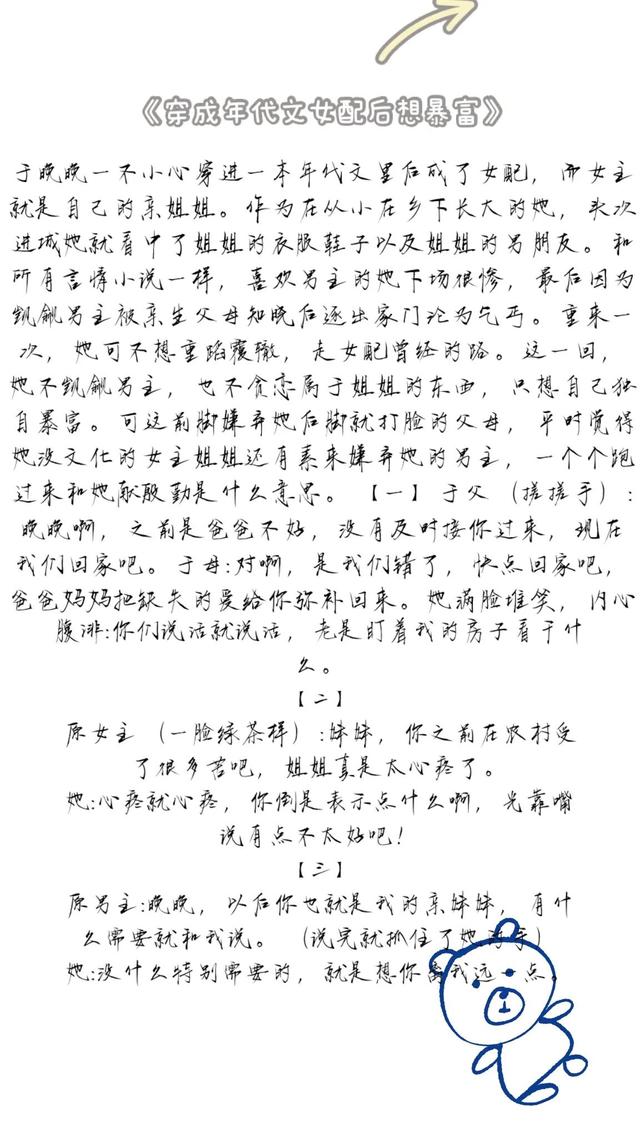 《穿成年代文女配后想暴富》
于晚晚一不小心穿进一本年代文里后成了女配，而女主
就是自己的亲姐姐。作为在从小在乡下长大的她，头次
进城她就看中了姐姐的衣服鞋子以及姐姐的男朋友。和
所有言情小说一样，喜欢男主的她下场很惨，最后因为
觊觎男主被亲生父母知晓后逐出家门沦为乞丐。重来一
次，她可不想重蹈覆辙，走女配曾经的路。这一回，
她不觊觎男主，也不贪恋属于姐姐的东西，只想自己独
自暴富。可这前脚嫌弃她后脚就打脸的父母，平时觉得
她没文化的女主姐姐还有素来嫌弃她的男主，一个个跑
过来和她献殷勤是什么意思。【一】于父（搓搓手）：
晚晚啊，之前是爸爸不好，没有及时接你过来，现在
我们回家吧。于母:对啊，是我们错了，快点回家吧，
爸爸妈妈把缺失的爱给你弥补回来。她满脸堆笑，内心
腹诽:你们说话就说话，老是盯着我的房子看干什
么。
【二】
原女主（一脸绿茶样）:妹妹，你之前在农村受
了很多苦吧，姐姐真是太心疼了。
她:心疼就心疼，你倒是表示点什么啊，光靠嘴
说有点不太好吧！
【三】
原男主:晚晚，以后你也就是我的亲妹妹，有什
么需要就和我说。（说完就抓住了她的手）
她:没什么特别需要的，就是想你离我远一点。